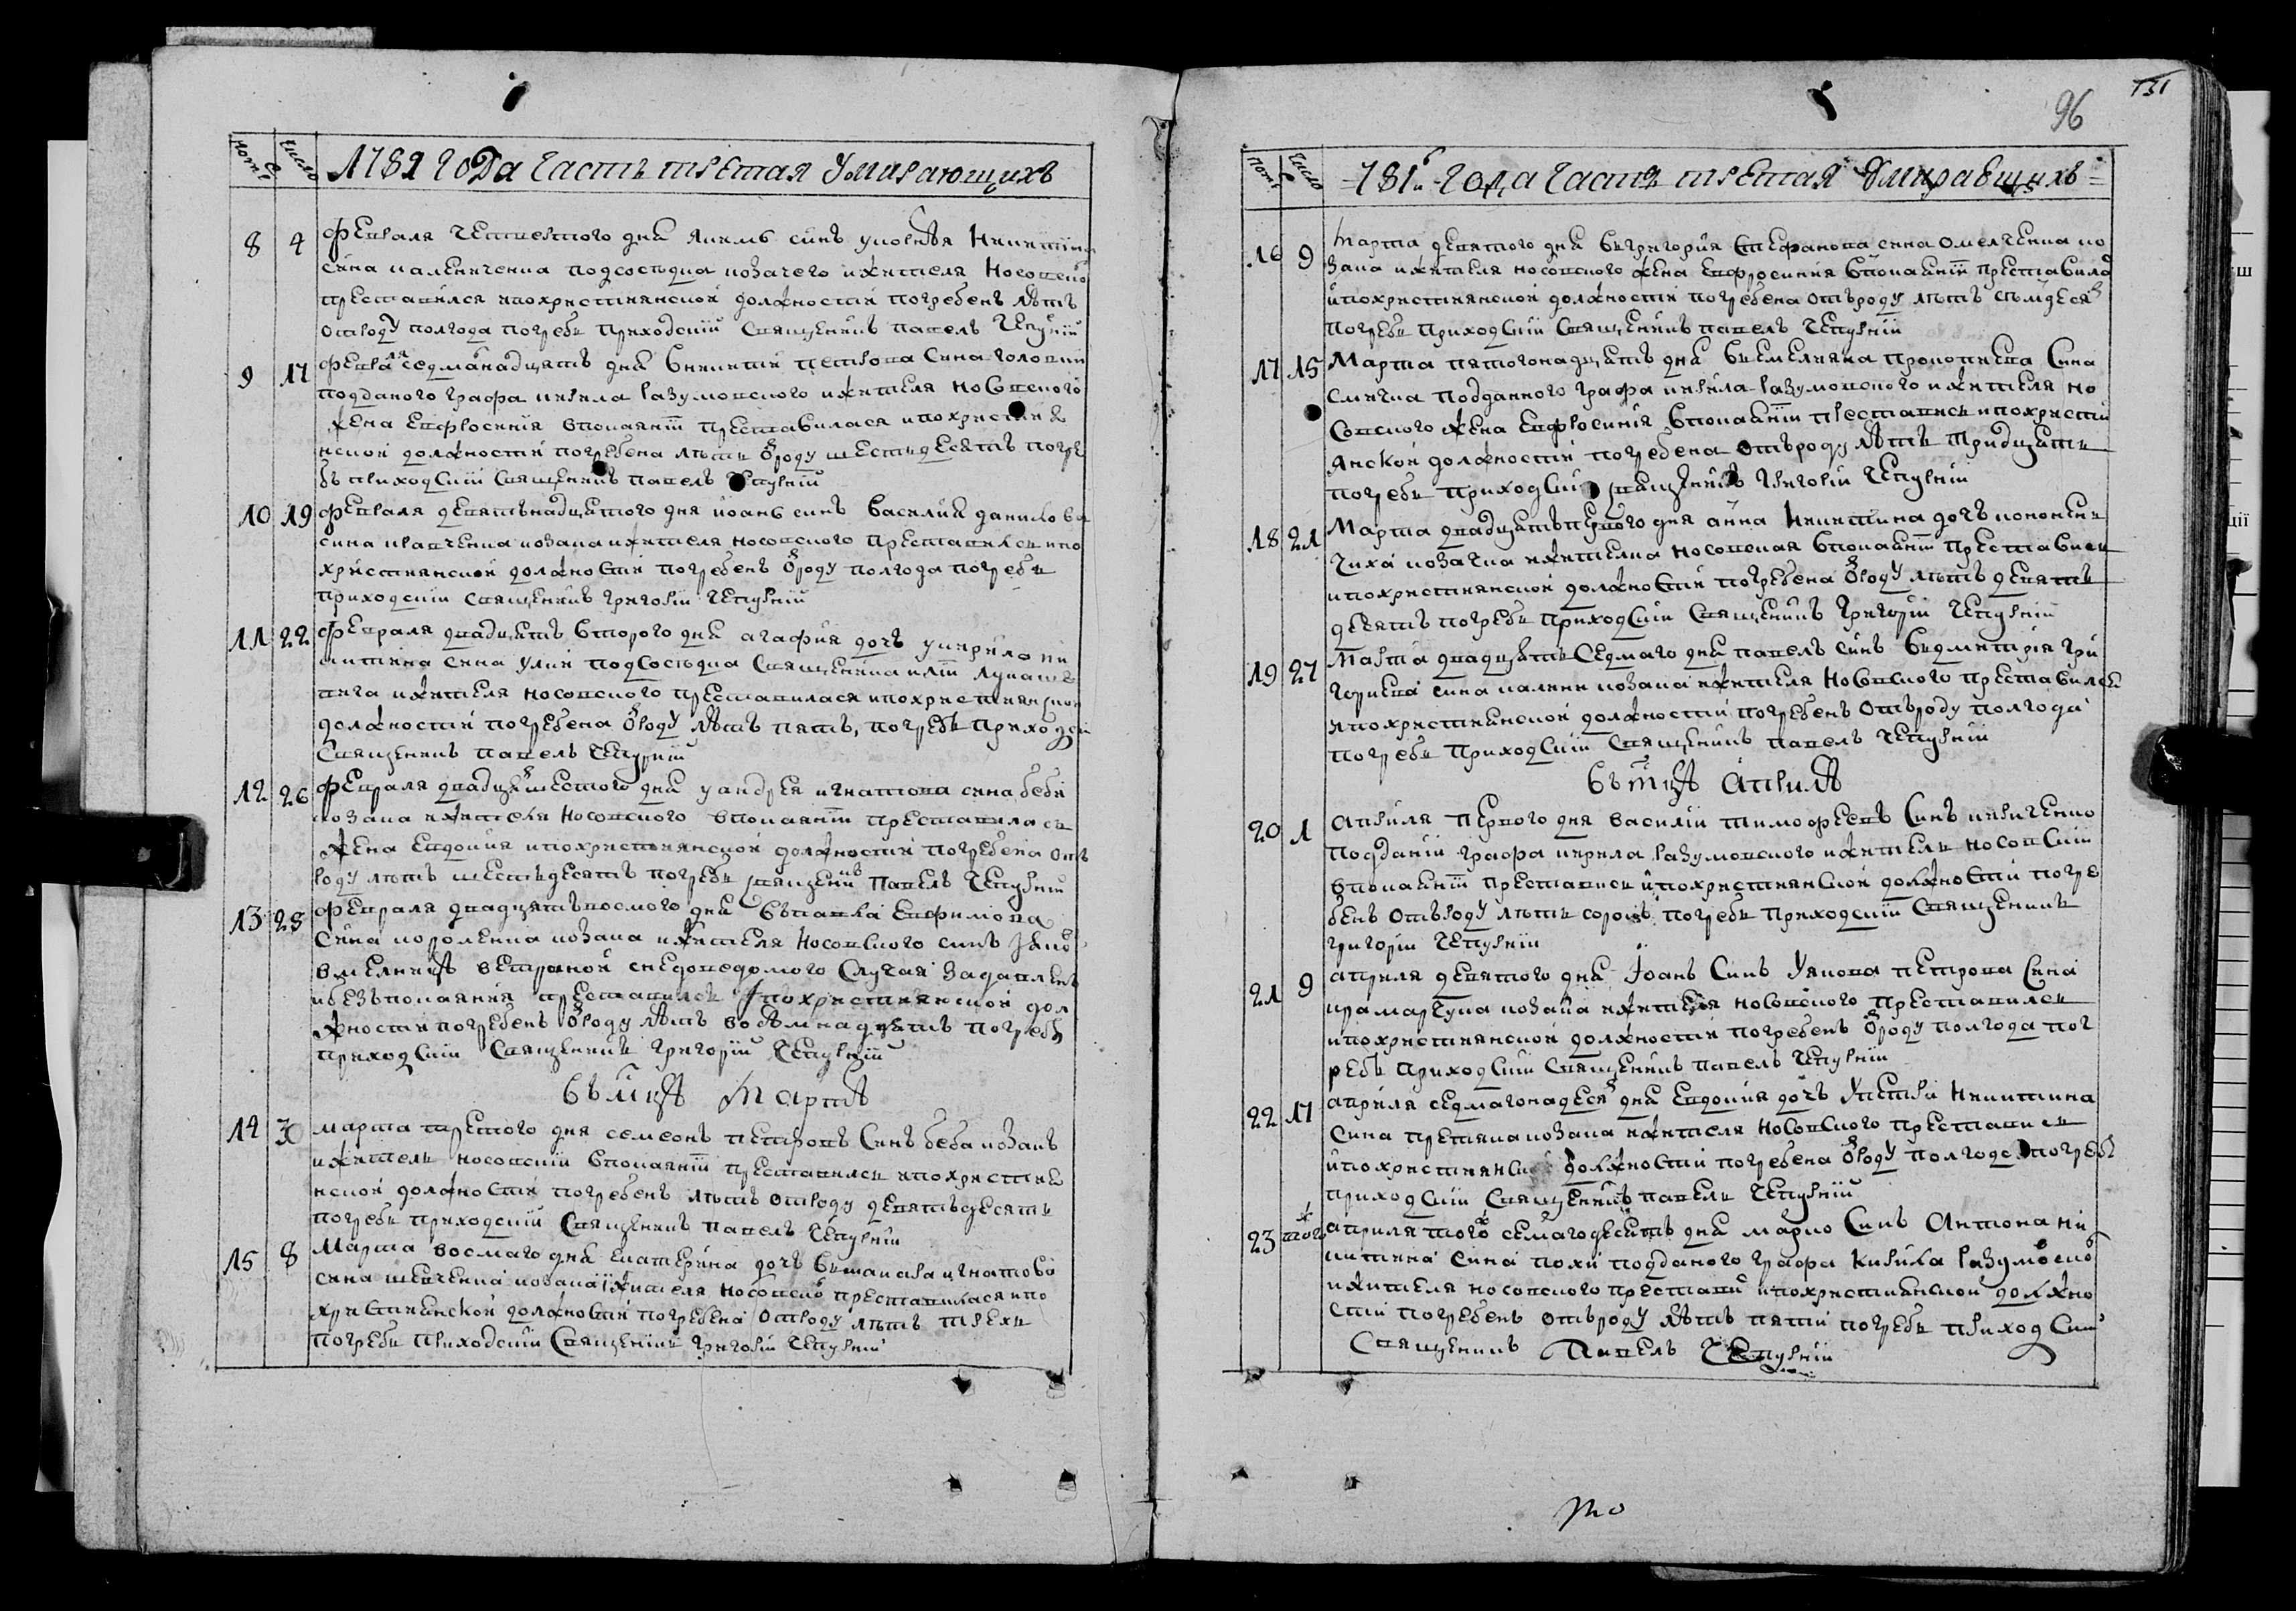 1781 года часть третая умирающихъ
8 4 Февраля четвертого дня Якимъ синъ
сина подсосѣдка козачего и жителя Носовско
преставился и по християнской должности погребенъ лѣтъ
отроду полгода погребе приходский священикъ Павелъ Чепурний
9 17 Февраля седманадцять дня в Никити Петрова сина Головки
подданого графа Кирила Разумовского и жителя Носовского
жена Евфросения в покаянии преставилася и по христия
нской должности погребена лѣтъ ѿроду шестьдесятъ погре
бъ приходский священикъ Павелъ Чепурний
10 19 Февраля девятьнадцятого дня Иоанъ синъ Василия Данилова
сина Кравченка козака и жителя Носовского преставился и по
християнской должности погребенъ ѿроду полгода погребе
приходский священикъ Григорий Чепурний
11 22 Февраля двадцять второго дня Агафия дочъ у Кирило Ни
китина сина подсосѣдка священика
и жителя Носовского преставилася и по християнской
должности погребена ѿроду лѣтъ пять, погребе приходски
священикъ Павелъ Чепурний
12 26 Февраля двадцяшестого дня у Андрея Игнатова сина Беби
козака и жителя Носовского в покаянии преставилася
жена Евдокия и по християнской должности погребена отъ
роду лѣтъ шестьдесятъ погребе священикъ Павелъ Чепурний
13 28 Февраля двадцятьвосмого дня въ Павла Евфимова
сина Короленка козака и жителя Носовского синъ Яков
в мелницѣ ветраной с недоведомого случая задавленъ
и безъ покаяния преставился и по християнской дол
жности погребенъ ѿроду лѣтъ восѣмнадцять погребъ
приходский священикъ Григорий Чепурний
въ мцѣ Мартѣ
14 3 Марта третого дня Семеонъ Петровъ синъ Беба козакъ
и житель носовский в покаянии преставился и по христия
нской должности погребенъ лѣтъ отроду девятьдесятъ
погребе приходский священикъ Павелъ Чепурний
15 8 Марта восмаго дня Екатерина дочъ въ Макара Игнатова
сина Шевченка козака и жителя Носовско преставилася и по
християнской должности погребена отроду лѣтъ трехъ
погребе приходский священикъ Григорий Чепурний
96
131
1781 года часть третая умиравшихъ
16 9 Марта девятого дня въ Григория Стефанова сина Омелченка ко
зака и жителя Носовского жена Евфросиния в покаянии преставила
и по християнской должности погребена отъроду лѣтъ сѣмдеся
погребе приходский священикъ Павелъ Чепурний
17 15 Марта пятогонадцять дня въ Емелияна Прокопиева сина
подданного графа Кирила Разумовского и жителя Но
совского жена Евфросиния в покаянии преставись и по христи
янской должности погребена отъроду лѣтъ тридцять
погребе приходский священикъ Григорий Чепурний
18 21 Марта двадцятьпервого дня Анна Никитина дочъ
козачка и жителка носовская в покаянии преставись
и по християнской должности погребена ѿроду лѣтъ девять
девять погребе приходский священикъ Григорий Чепурний
19 27 Марта двадцять седмаго дня Павелъ синъ въ Дмитрия Гри
гориева сина козака и жителя Носовского преставился
и по християнской должности погребенъ отъроду полгода
погребе приходский священикъ Павелъ Чепурний
въ мцѣ Априлѣ
20 1 Априля первого дня Василий Тимофеевъ синъ Кириченко
подданий графа Кирила Разумовского и житель носовский
в покаянии преставись и по християнской должности погре
бенъ отъроду лѣтъ сорокъ погребе приходский священикъ
Григорий Чепурний
21 9 Априля девятого дня Иоанъ синъ Якова Петрова сина
Крамарчука козака и жителя Носовского преставился
и по християнской должности погребенъ ѿроду полгода пог
ребъ приходский священикъ Павелъ Чепурний
22 17 Априля седмагонадеся дня Евдокия дочъ у Петра Никитина
сина козака и жителя Носовского преставися
и по християнской должности погребена ѿроду полгода погребъ
приходский священикъ Павелъ Чепурний
23 того Априля того семагодесять дня Марко синъ Антона Ни
китина сина подданого графа Кирила Разумовско
и жителя Носовского преставис и по християнской должно
сти погребенъ отъроду лѣтъ пяти погребе приходский
священикъ Павелъ Чепурний